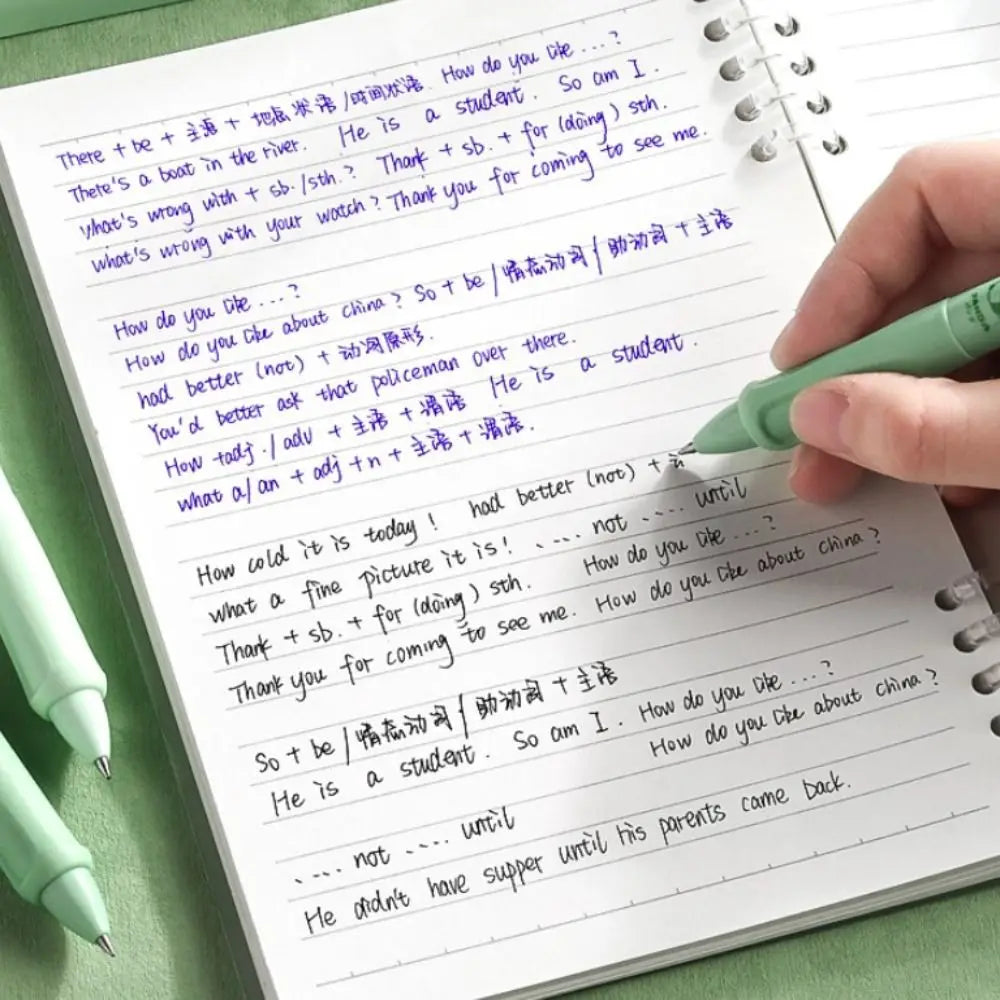 There + be + 主语 + 地点状语 / 时间状语. How do you like ...?
There's a boat in the river. He is a student. So am I.
what's wrong with + sb. / sth.? Thank + sb. + for (doing) sth.
what's wrong with your watch? Thank you for coming to see me.
How do you like ...?
How do you like about china? So + be / 情态动词 / 助动词 + 主语
had better (not) + 动词原形.
You'd better ask that policeman over there.
How + adj. / adv + 主语 + 谓语 He is a student.
what a / an + adj + n + 主语 + 谓语.
How cold it is today! had better (not) +
what a fine picture it is! .... not .... until
Thank + sb. + for (doing) sth. How do you like ...?
Thank you for coming to see me. How do you like about china?
So + be / 情态动词 / 助动词 + 主语
He is a student. So am I. How do you like ...?
How do you like about china?
.... not .... until
He didn't have supper until his parents came back.